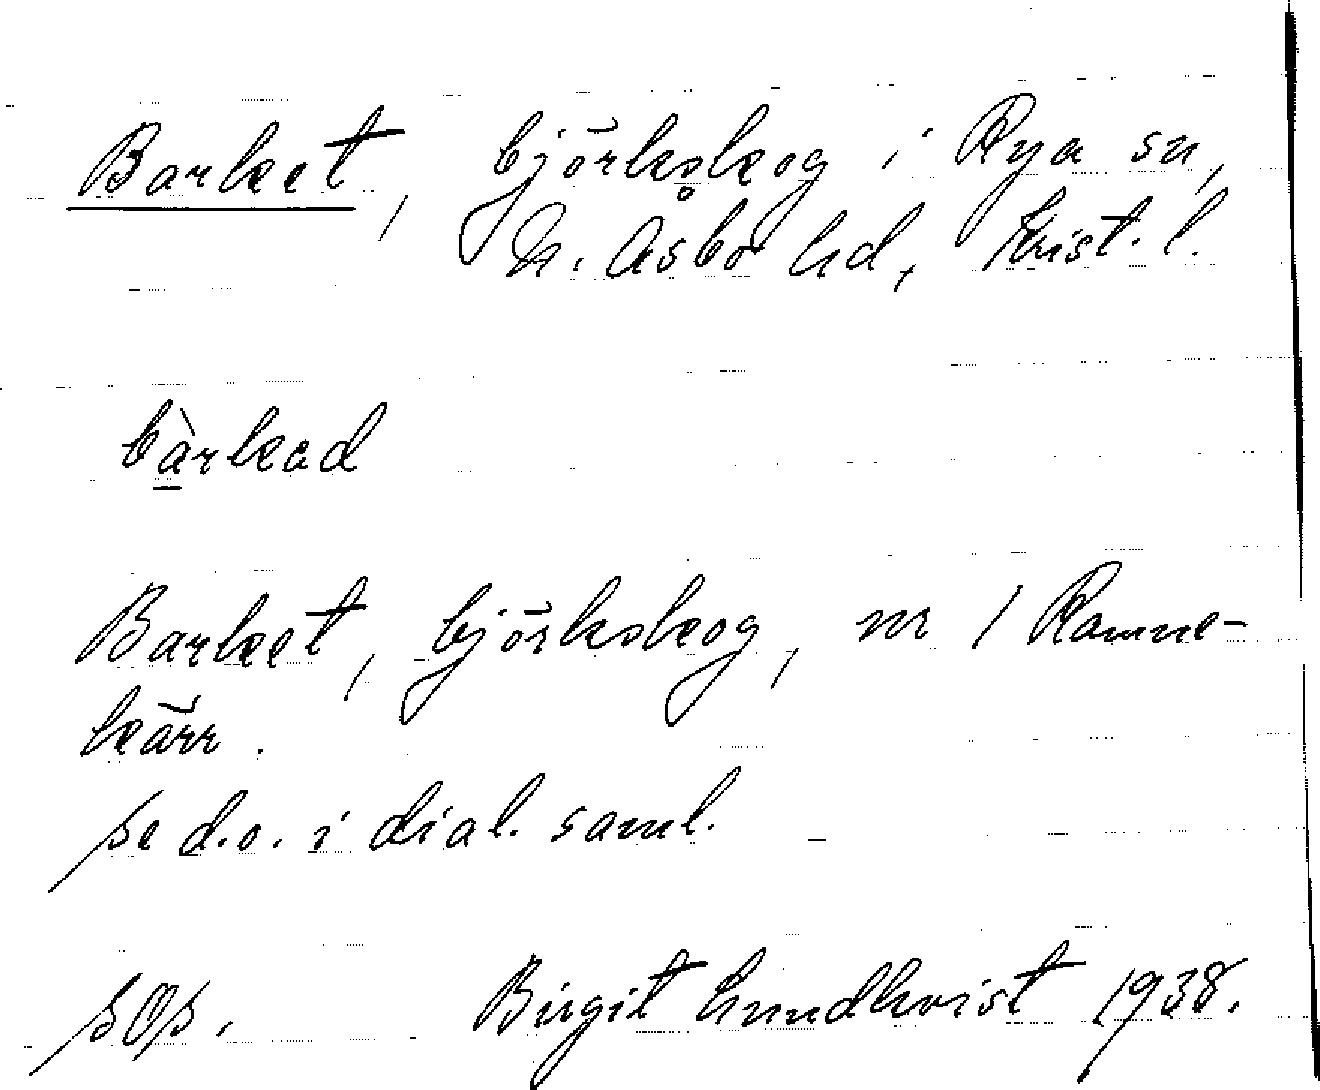 Barket, björkskog i Rya sn,
N. Åsbo hd, Krist. l.
bàrkad
Barket, björkskog, nr 1 Ramne-
kärr.
se d.o. i dial. saml.
SOS. Birgit Lundkvist 1938.